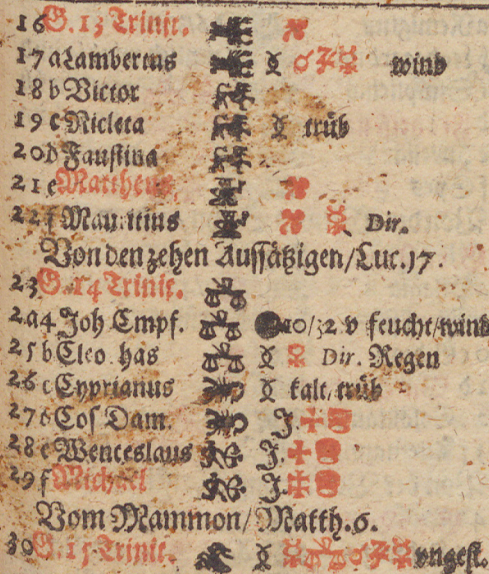 16 G. 13 Trinit.
17 a Lambertus ☿ ♂ ☿ wind
18 b Victor
19 c Nicleta ☿ trüb
20 d Faustina
21 e Mattheus
22 f Mauritius Dir.
Von den zehen Aussätzigen/Luc. 17.
23 G. 14 Trinit.
24 a Joh Empf. 10/32 v feucht/wind
25 b Cleo has ☿ Dir. Regen
26 c Cyprianus ☿ kalt/trüb
27 d Cos Dam.
28 e Wenceslaus
29 f Michael
Vom Mammon/Matth. 6.
30 G. 15 Trinit. ☿ ☿ ♎ ♂ ☿ vngest.